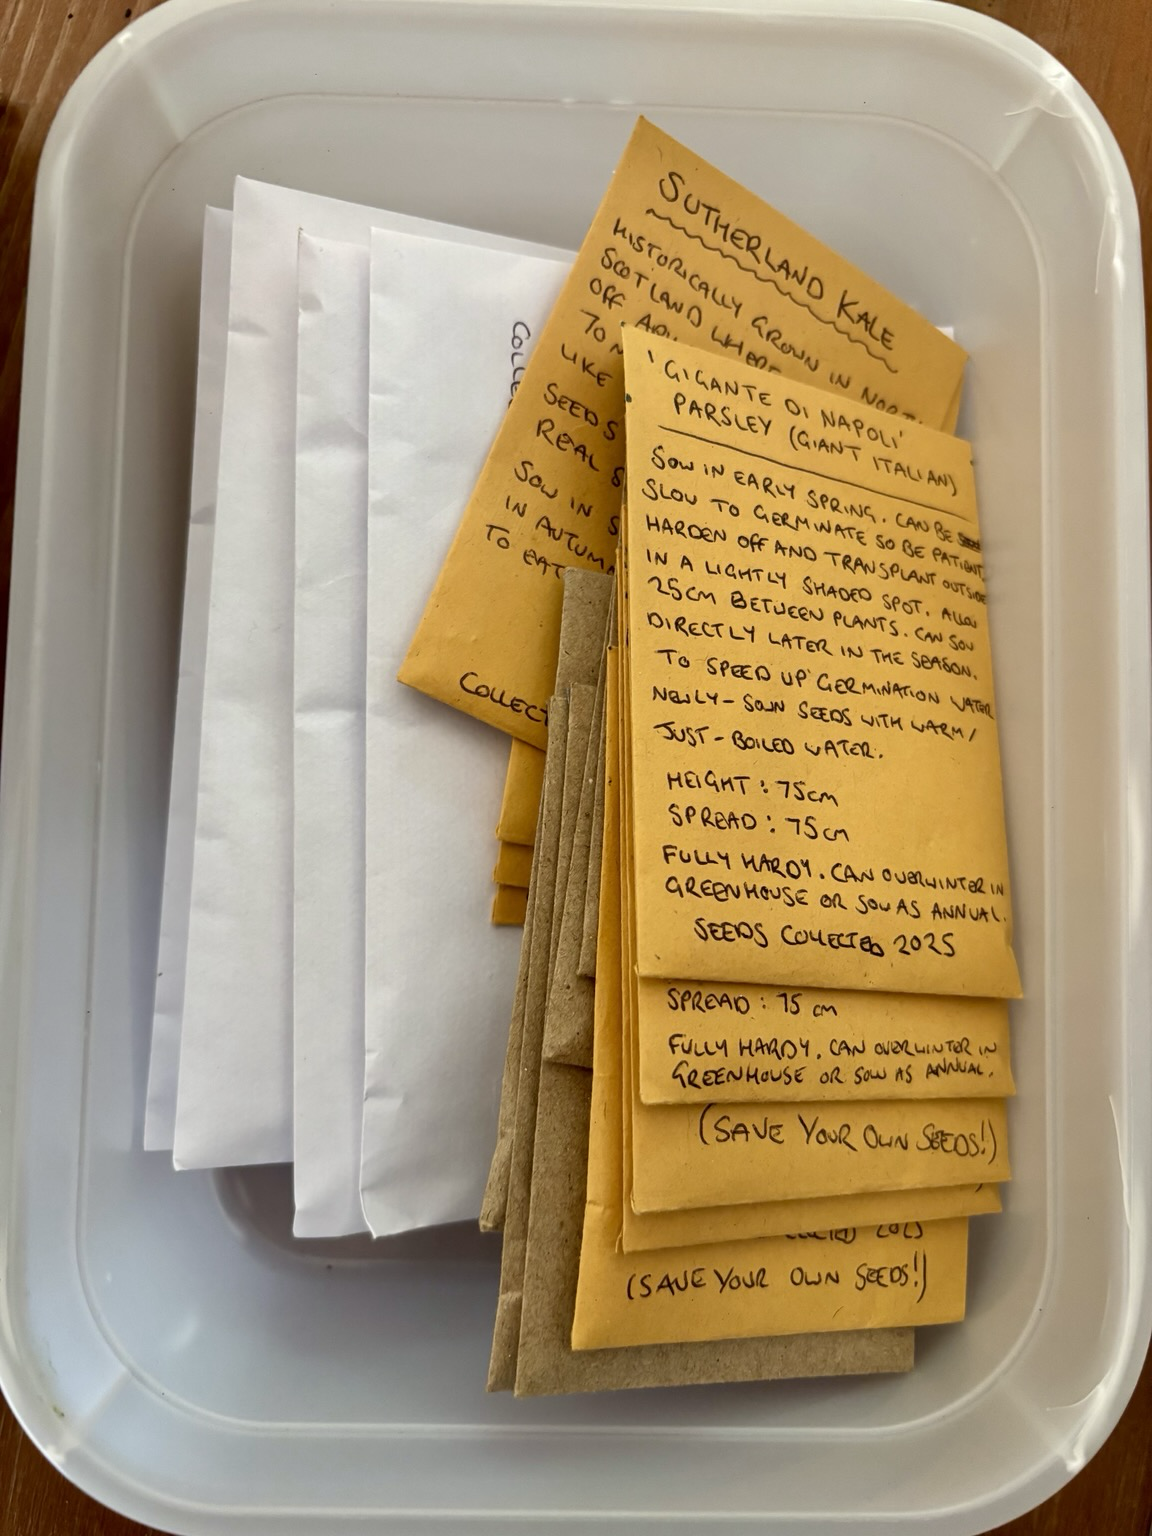 SUTHERLAND KALE
HISTORICALLY GROWN IN
SCOTLAND WHERE
OFF
TO
LIKE
SEEDS
REAL
SOW IN
IN AUTUMN
TO EAT
'GIGANTE DI NAPOLI'
PARSLEY (GIANT ITALIAN)
SOW IN EARLY SPRING. CAN BE
SLOW TO GERMINATE SO BE PATIENT.
HARDEN OFF AND TRANSPLANT OUTSIDE
IN A LIGHTLY SHADED SPOT. ALLOW
25CM BETWEEN PLANTS. CAN SOW
DIRECTLY LATER IN THE SEASON.
TO SPEED UP GERMINATION WATER
NEWLY-SOWN SEEDS WITH WARM/
JUST-BOILED WATER.
HEIGHT: 75cm
SPREAD: 75cm
FULLY HARDY. CAN OVERWINTER IN
GREENHOUSE OR SOW AS ANNUAL.
SEEDS COLLECTED 2025
SPREAD: 75 cm
FULLY HARDY. CAN OVERWINTER IN
GREENHOUSE OR SOW AS ANNUAL.
(SAVE YOUR OWN SEEDS!)
(SAVE YOUR OWN SEEDS!)